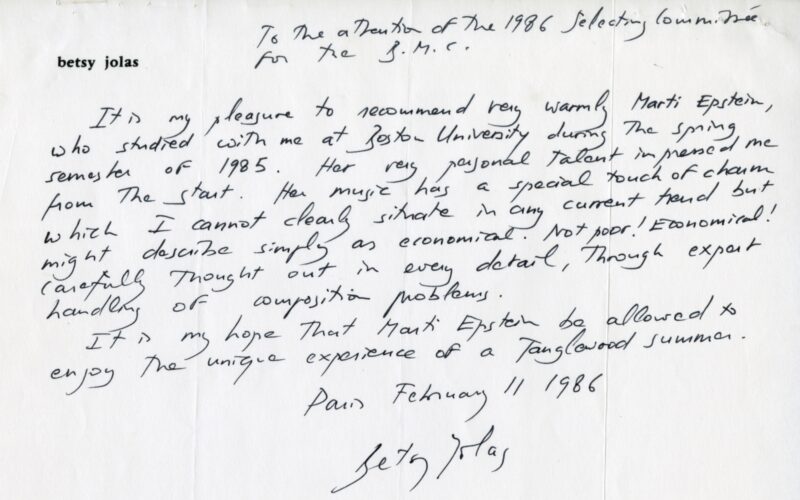 To the attention of the 1986 Selecting Committee
for the B.M.C.
betsy jolas
It is my pleasure to recommend very warmly Marti Epstein,
who studied with me at Boston University during the spring
semester of 1985. Her very personal talent impressed me
from the start. Her music has a special touch of charm
which I cannot clearly situate in any current trend but
might describe simply as economical. Not poor! Economical!
Carefully thought out in every detail, through expert
handling of composition problems.
It is my hope that Marti Epstein be allowed to
enjoy the unique experience of a Tanglewood summer.
Paris February 11 1986
Betsy Jolas